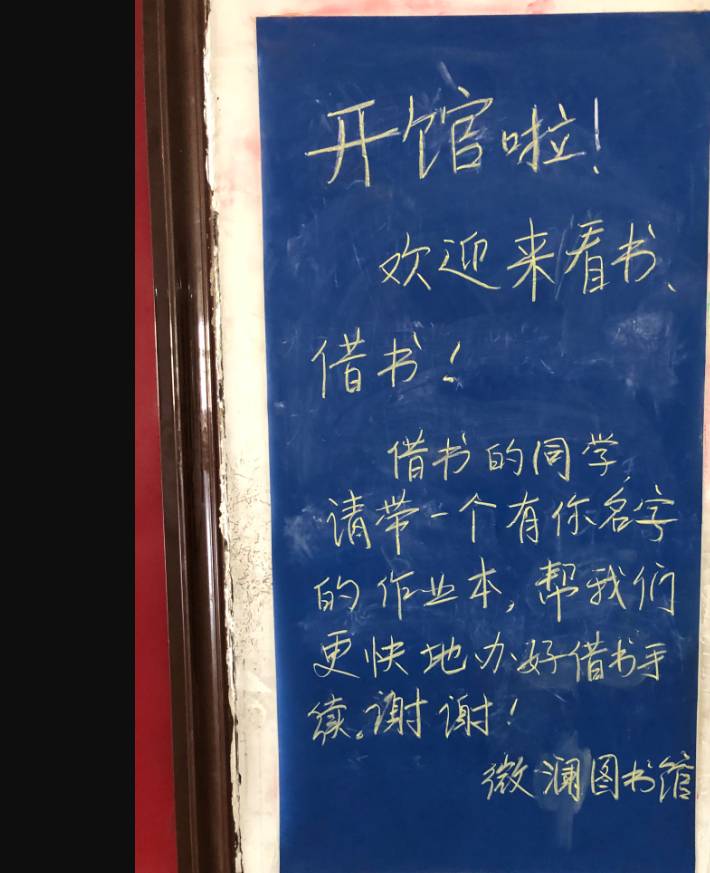 开馆啦！
欢迎来看书、
借书！
借书的同学，
请带一个有你名字
的作业本，帮我们
更快地办好借书手
续。谢谢！
微澜图书馆